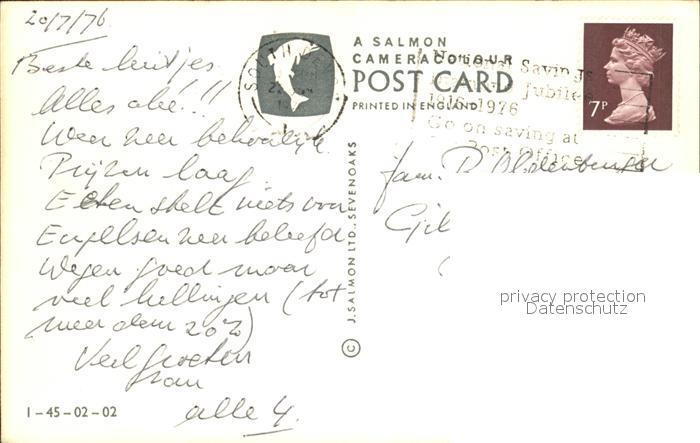 20/7/76
Beste luitjes.
Alles oké!!!
Weer zeer behoorlijk
Prijzen laag
Eten stelt niets voor
Engelsen zeer beleefd
Wegen goed maar
veel hellingen (tot
meer dan 20%)
Veel groeten
van
alle 4.
1-45-02-02
A SALMON
CAMERACOLOUR
POST CARD
PRINTED IN ENGLAND
© J. SALMON LTD., SEVENOAKS
National Savings
Jubilee
1916-1976
Go on saving at
Post Office
7P
Fam.
privacy protection
Datenschutz